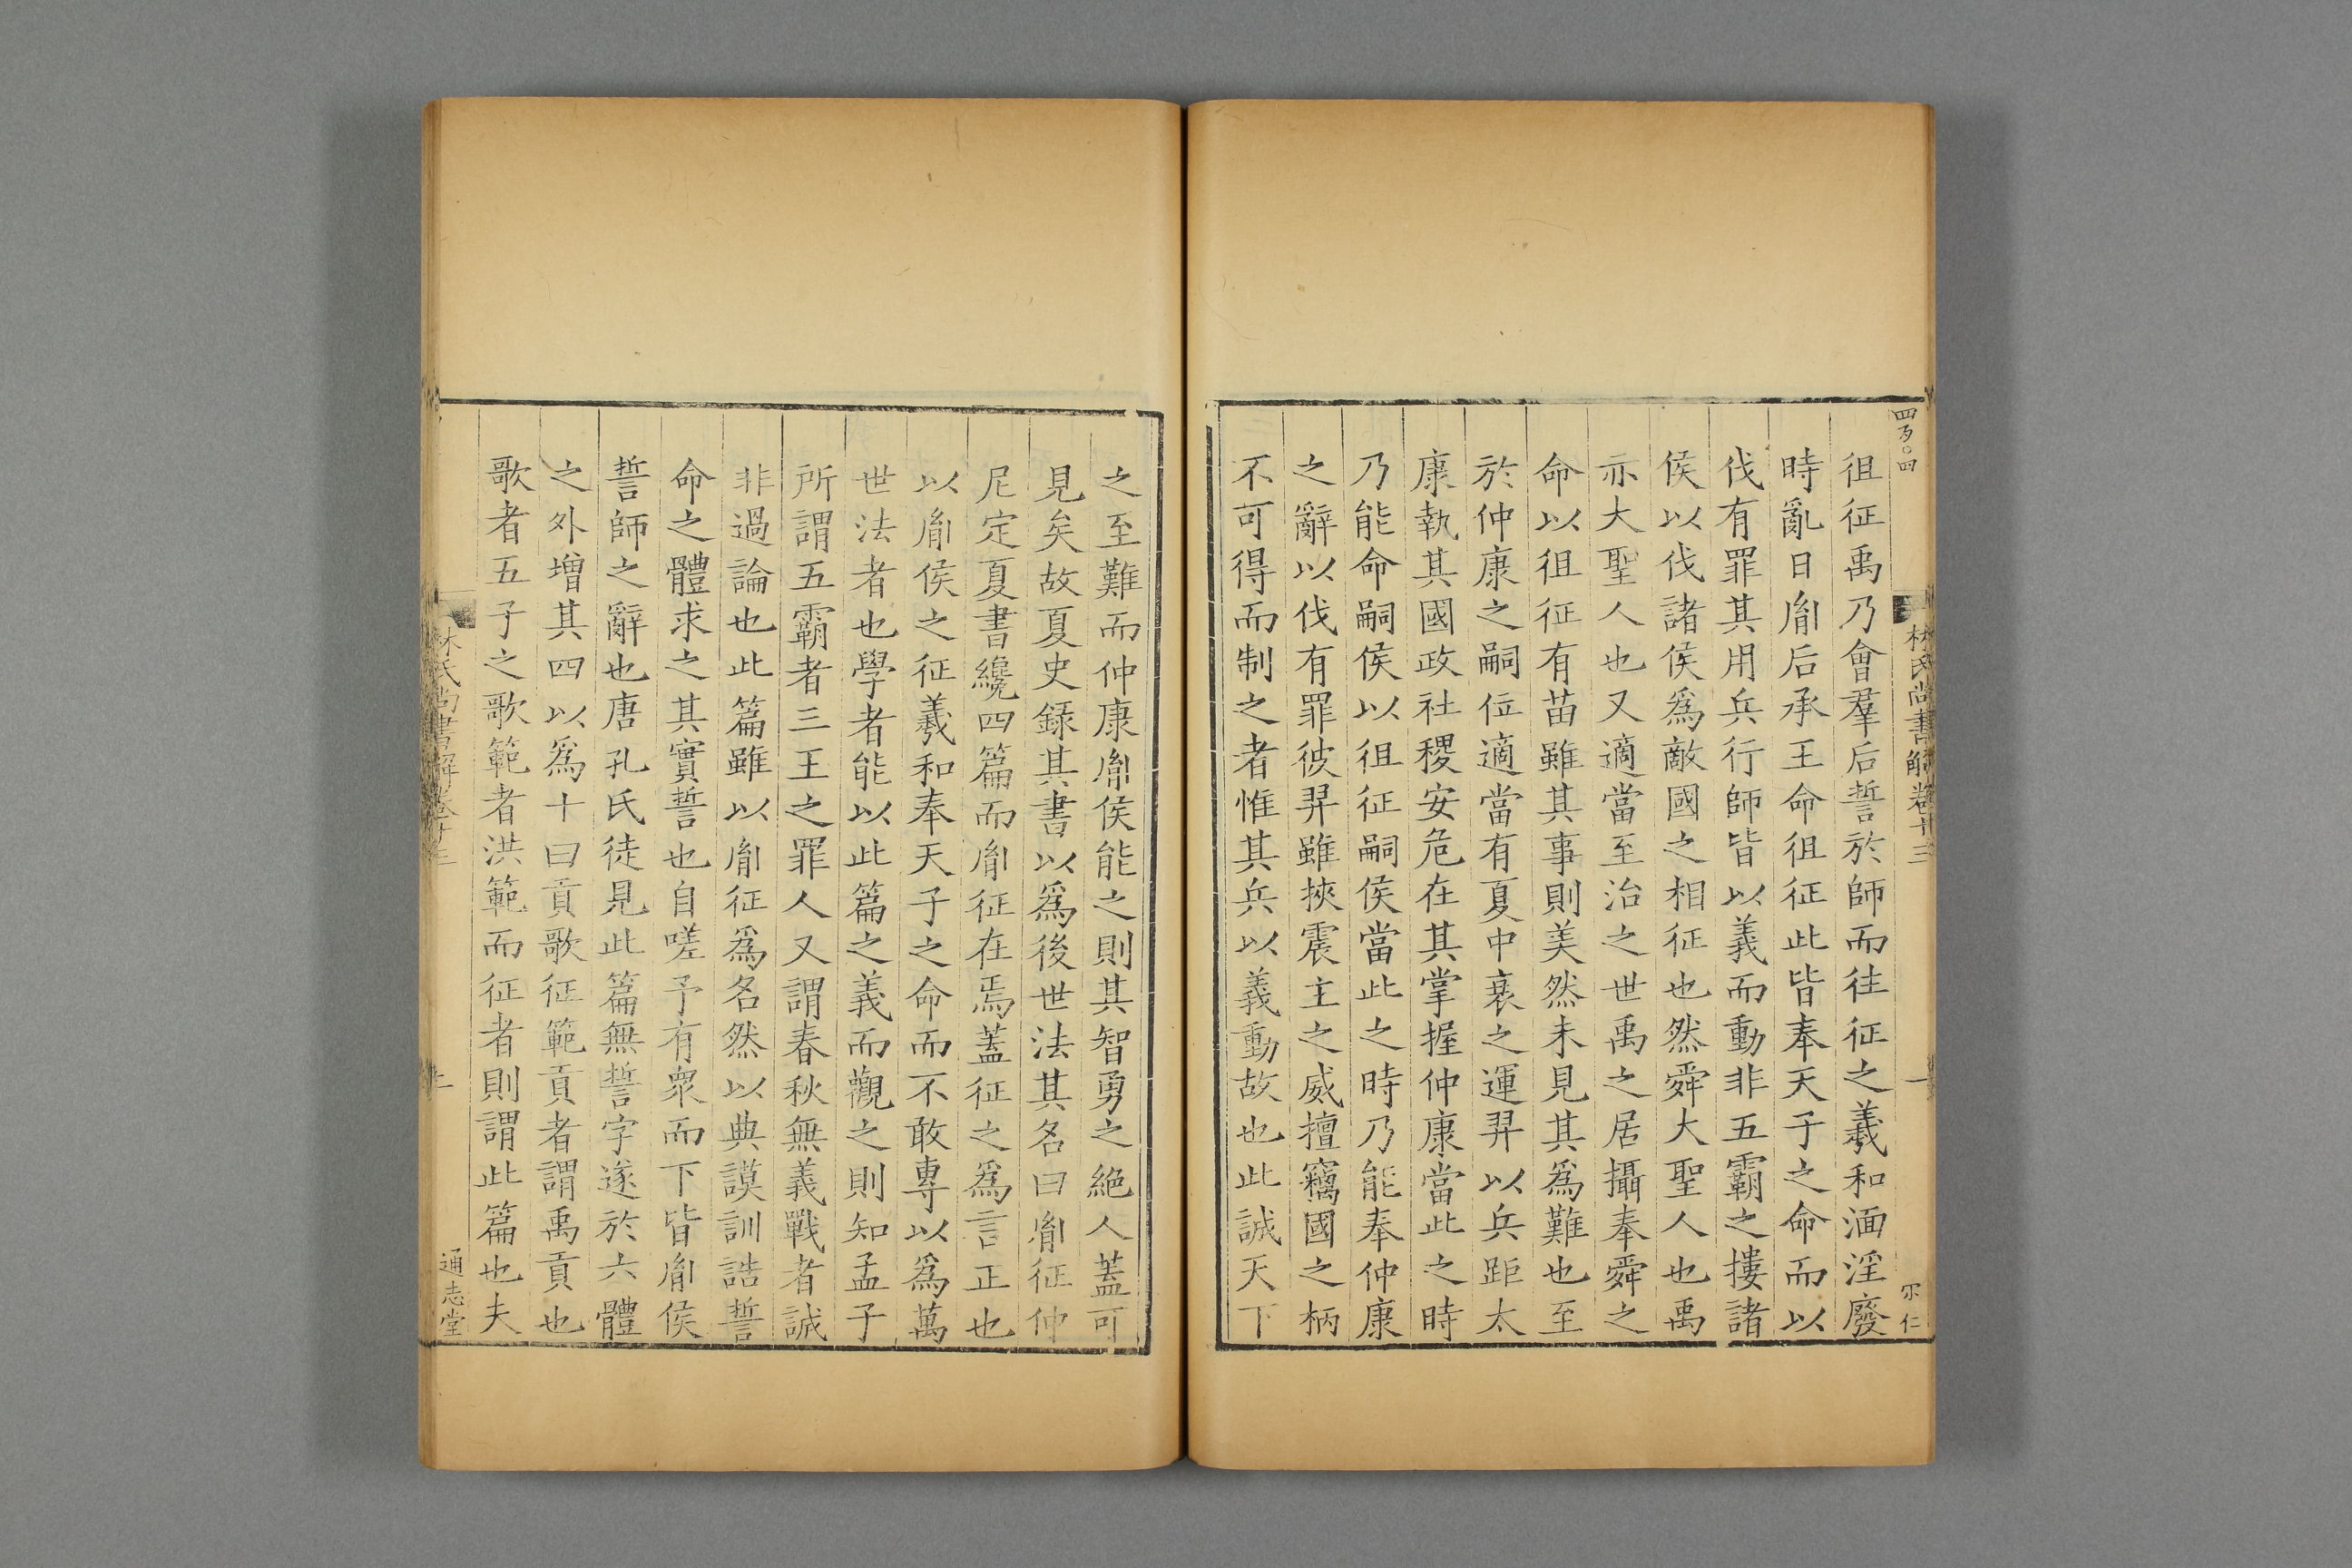 四百○四
林氏尚書解卷十三
一
宗仁
徂征禹乃會羣后誓於師而往征之羲和湎淫廢
時亂日胤后承王命徂征此皆奉天子之命而以
伐有罪其用兵行師皆以義而動非五霸之摟諸
侯以伐諸侯爲敵國之相征也然舜大聖人也禹
亦大聖人也又適當至治之世禹之居攝奉舜之
命以徂征有苗雖其事則美然未見其爲難也至
於仲康之嗣位適當有夏中衰之運羿以兵距太
康執其國政社稷安危在其掌握仲康當此之時
乃能命嗣侯以徂征嗣侯當此之時乃能奉仲康
之辭以伐有罪彼羿雖挾震主之威擅竊國之柄
不可得而制之者惟其兵以義動故也此誠天下
之至難而仲康胤侯能之則其智勇之絶人蓋可
見矣故夏史録其書以爲後世法其名曰胤征仲
尼定夏書纔四篇而胤征在焉蓋征之爲言正也
以胤侯之征羲和奉天子之命而不敢專以爲萬
世法者也學者能以此篇之義而觀之則知孟子
所謂五霸者三王之罪人又謂春秋無義戰者誠
非過論也此篇雖以胤征爲名然以典謨訓誥誓
命之體求之其實誓也自嗟予有衆而下皆胤侯
誓師之辭也唐孔氏徒見此篇無誓字遂於六體
之外增其四以爲十曰貢歌征範貢者謂禹貢也
歌者五子之歌範者洪範而征者則謂此篇也夫
林氏尚書解卷十三
通志堂